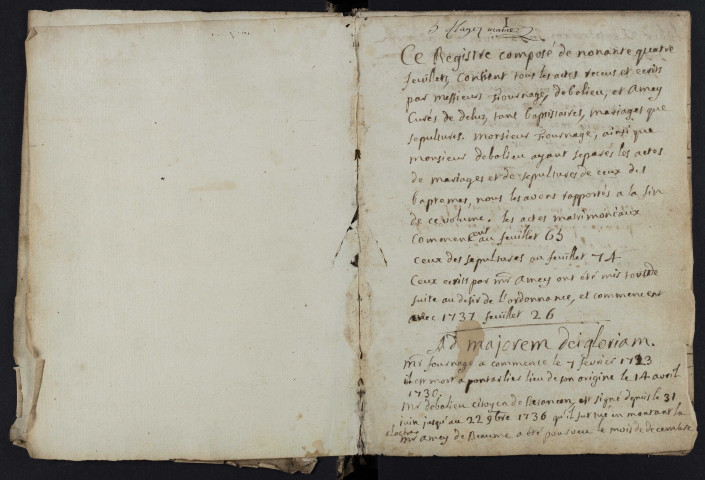 1
Ce Registre composé de nonante quatre
feuillets, Contient tous les actes receus et ecrits
par messieurs fournage, debalieu, et Amey
Curés de deluz, tant baptistaires, mariages que
sepultures. monsieur fournage, ainsi que
monsieur debalieu ayant separés les actes
de mariages et de sepultures de ceux des
baptemes, nous les avons rapportés a la fin
de ce volume. les actes matrimoniaux
commencent au feuillet 63
ceux des sepultures au feuillet 74
Ceux ecrits par mr Amey ont été mis tous de
suite au desir de l'ordonnance, et commencent
avec 1737 feuillet 26
Ad majorem dei gloriam.
mr fournage a commencé le 7 fevrier 1723
il est mort a pontarlier lieu de son origine le 14 avril
1730.
Mr debalieu citoyen de Besancon, est signé depuis le 31
juin jusqu'au 22 9bre 1736 qu'il fut tué en montant la
mr Amey de Beaume a été pourveu le mois de decembre